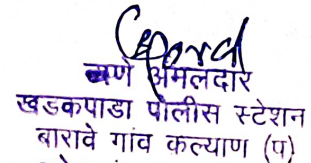 अमलदार
खडकपाडा पोलीस स्टेशन
बारावे गांव कल्याण (प)